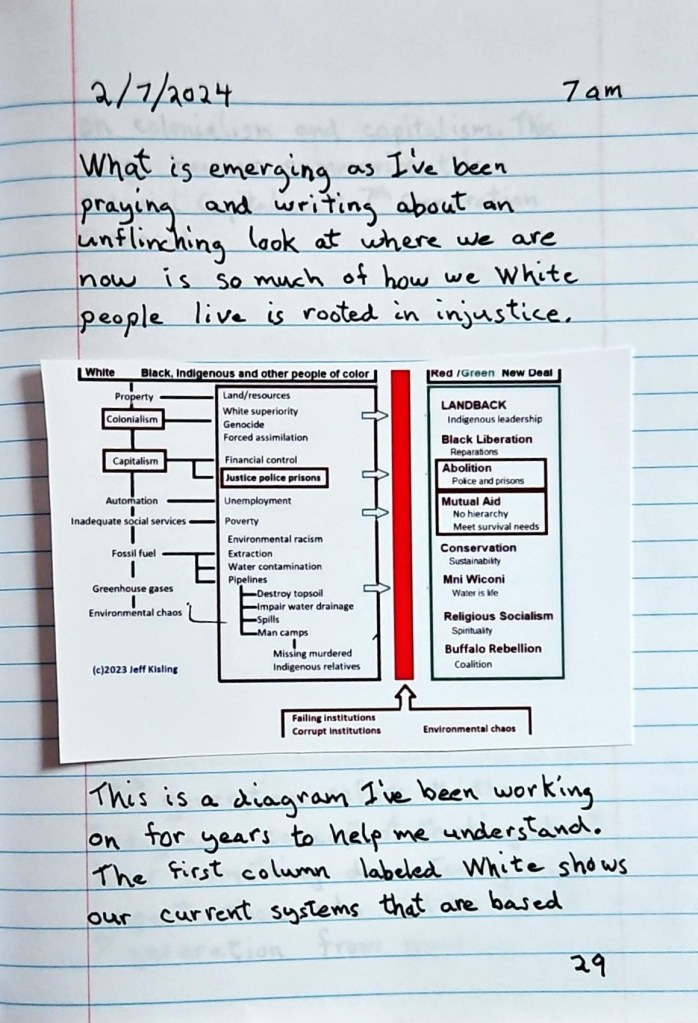 2/7/2024 7am
What is emerging as I've been
praying and writing about an
unflinching look at where we are
now is so much of how we White
people live is rooted in injustice.
White Black, Indigenous and other people of color
Property
Colonialism
Capitalism
Automation
Inadequate social services
Fossil fuel
Greenhouse gases
Environmental chaos
(c)2023 Jeff Kisling
Land/resources
White superiority
Genocide
Forced assimilation
Financial control
Justice police prisons
Unemployment
Poverty
Environmental racism
Extraction
Water contamination
Pipelines
Destroy topsoil
Impair water drainage
Spills
Man camps
Missing murdered
Indigenous relatives
Red /Green New Deal
LANDBACK
Indigenous leadership
Black Liberation
Reparations
Abolition
Police and prisons
Mutual Aid
No hierarchy
Meet survival needs
Conservation
Sustainability
Mni Wiconi
Water is life
Religious Socialism
Spirituality
Buffalo Rebellion
Coalition
Failing institutions
Corrupt institutions
Environmental chaos
This is a diagram I've been working
on for years to help me understand.
The first column labeled White shows
our current systems that are based
29